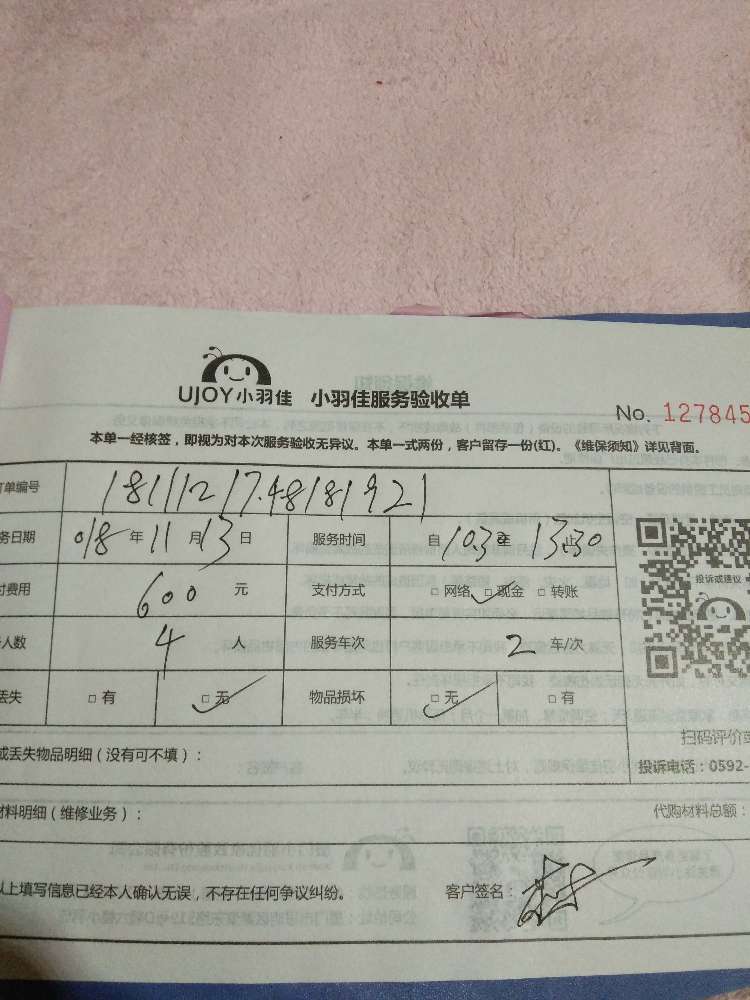 UJOY小羽佳 小羽佳服务验收单
No. 127845
本单一经核签，即视为对本次服务验收无异议。本单一式两份，客户留存一份(红)。《维保须知》详见背面。
订单编号 1811121748181921
务日期 018年11月13日 服务时间 自10:30至13:30止
付费用 600元 支付方式 □网络 ☑现金 □转账
人数 4人 服务车次 2车/次
丢失 □有 ☑无 物品损坏 ☑无 □有
投诉或建议
扫码评价或
投诉电话：0592-
或丢失物品明细（没有可不填）：
材料明细（维修业务）： 代购材料总额：
以上填写信息已经本人确认无误，不存在任何争议纠纷。 客户签名：